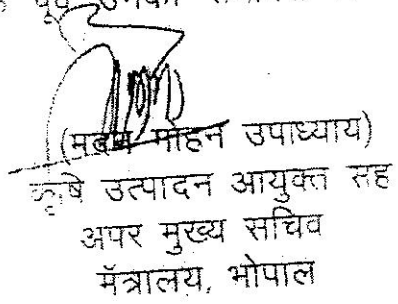 पूर्व उनका
(मदन मोहन उपाध्याय)
कृषि उत्पादन आयुक्त सह
अपर मुख्य सचिव
मंत्रालय, भोपाल